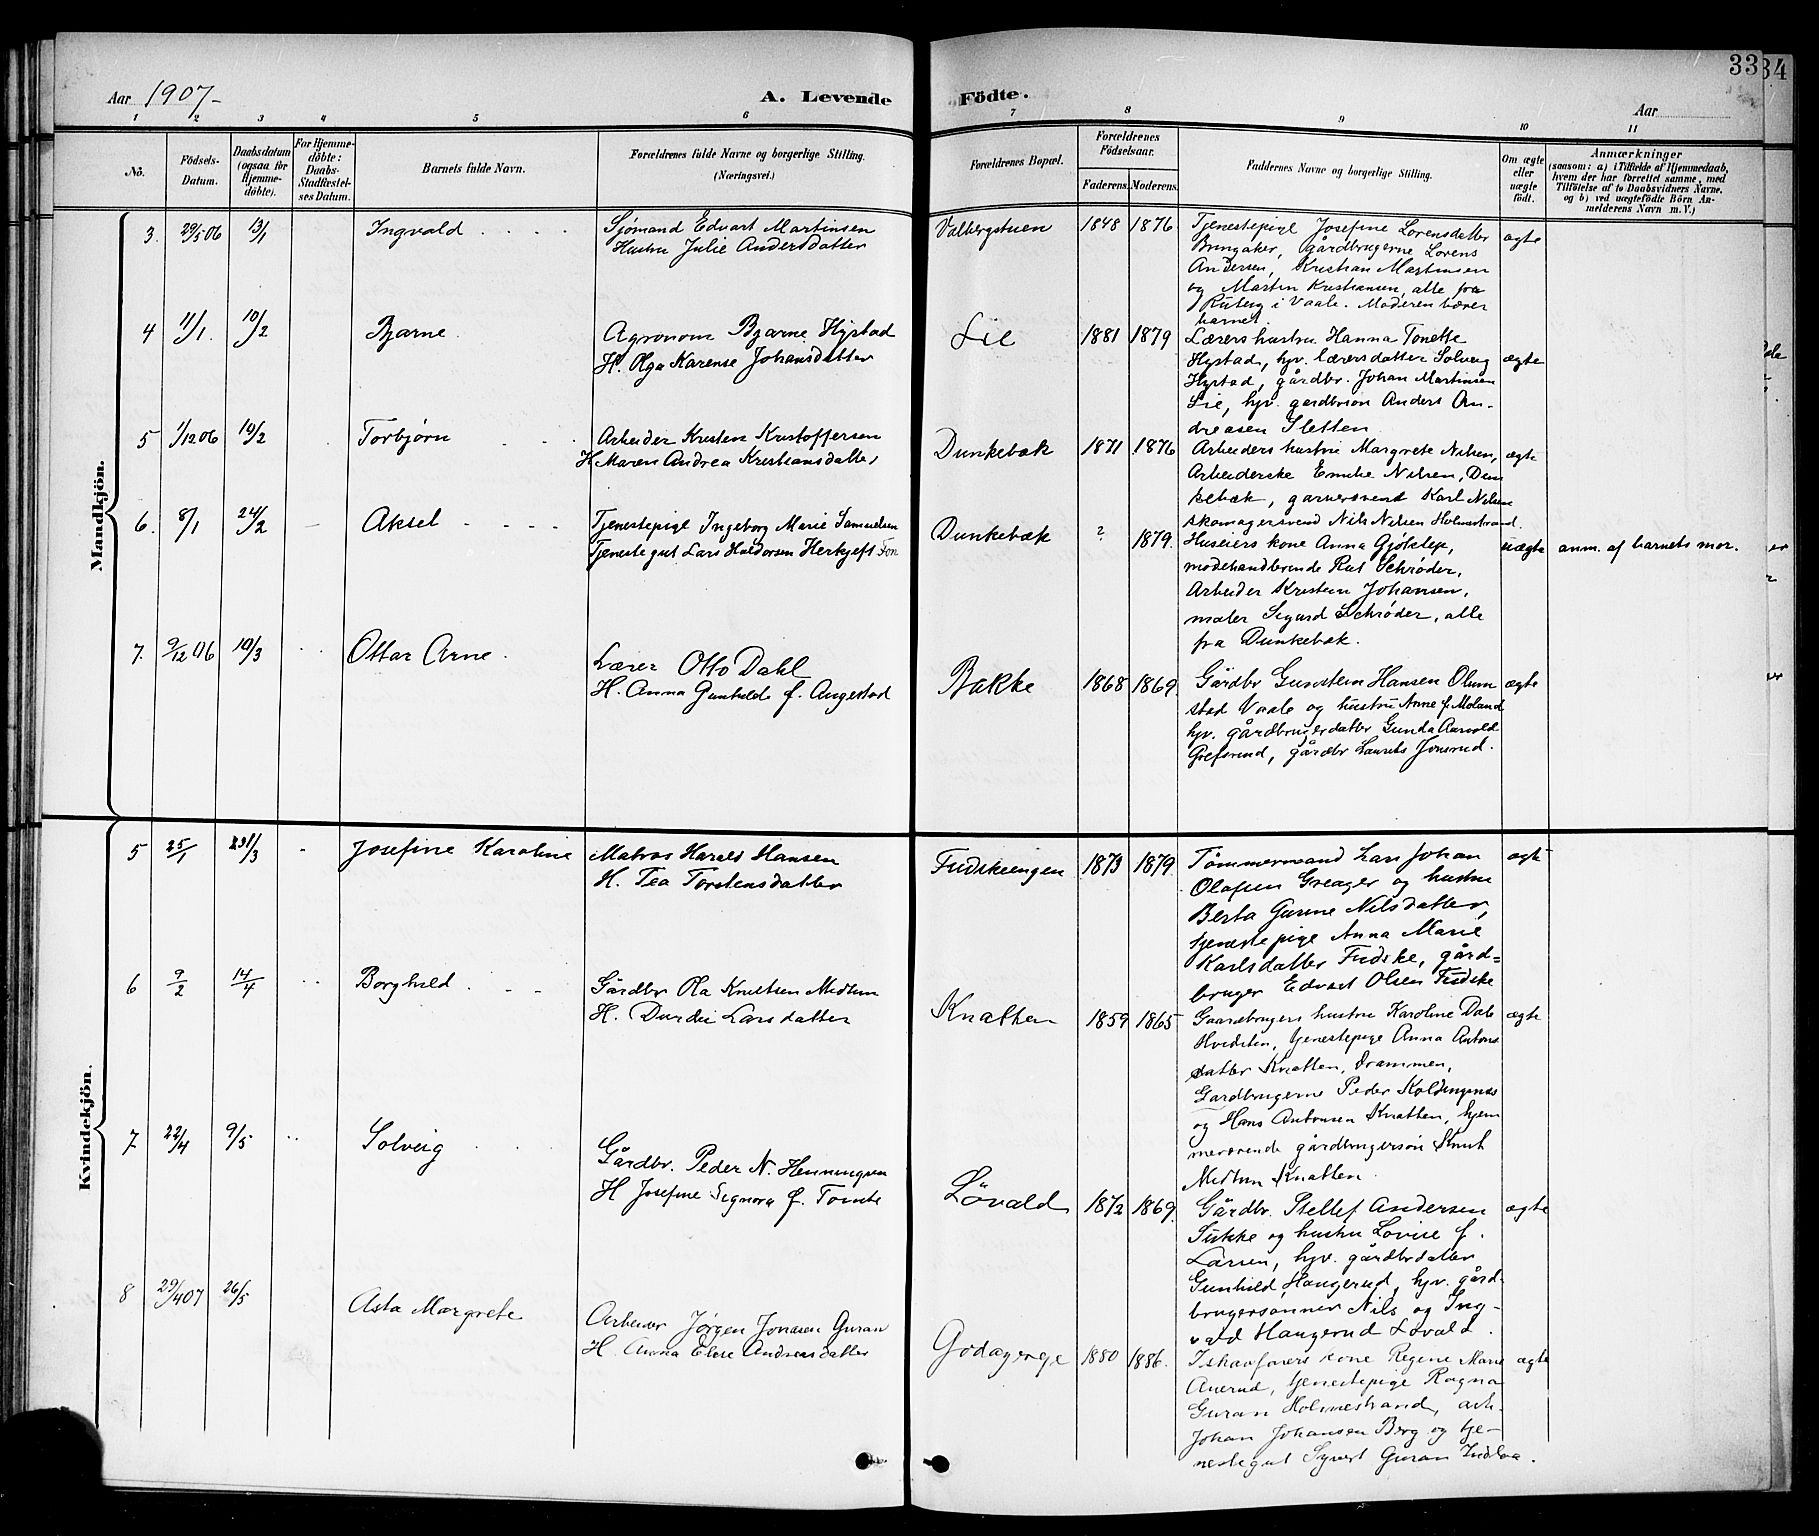 33
34
Aar 1907-
A. Levende
Födte.
Aar
1 2 3 4 5 6 7 8 9 10 11
No.
Födsels-
Datum.
Daabsdatum
(ogsaa for
Hjemme-
döbte).
For Hjemme-
döbte:
Daabs-
Stadfæstel-
ses Datum.
Barnets fulde Navn.
Forældrenes fulde Navne og borgerlige Stilling.
(Næringsvei.)
Forældrenes Bopæl.
Forældrenes
Födselsaar.
Faderens.
Moderens.
Faddernes Navne og borgerlige Stilling.
Om ægte
eller
uægte
födt.
Anmærkninger
(saasom: a) i Tilfælde af Hjemmedaab,
hvem der har forrettet samme, med
Tilföielse af to Daabsvidners Navne,
og b) ved uægtefödte Börn An-
melderens Navn m. V.)
Mandkjön.
3. 29/5 06 13/1 Ingvald
Sjømand Edvart Martinsen
Hustru Julie Andersdatter
Valbergstuen 1848 1876
Tjenestepige Josefine Lorensdatter
Bringaker, gårdbrugerne Lorens
Andersen, Kristian Martinsen
og Martin Kristiansen, alle fra
i Vaale. Moderen bærer
barnet.
ægte
4 11/1. 10/2 Bjarne
Agronom Bjarne Hystad
H. Olga Karense Johansdatter
Lie 1881 1879
Lærers hustru Hanna Tonette
Hystad, hjv. lærersdatter Solveig
Hystad, gårdbr. Johan Martinsen
Lie, hjv. gardbrsøn Anders An-
dreasen Sletten
ægte
5 1/12 06 10/2 Torbjørn
Arbeider Kristen Kristoffersen
H. Maren Andrea Kristiansdatter
Dunkebæk 1871 1876
Arbeiders hustru Margrete Nilsen,
Arbeiderske Emilie Nilsen, Dun
kebæk, garversvend Karl Nilsen
skomagersvend Nils Nilsen Holmestrand.
ægte
6. 8/1 24/2 Aksel
Tjenestepige Ingeborg Marie Samuelsen
Tjenestegut Lars Haldorsen
Dunkebæk ? 1879.
Huseiers kone Anna Gjøklep,
modehandlerinde Rut Schrøder,
Arbeider Kristen Johansen,
maler Sigurd Schrøder, alle
fra Dunkebæk.
uægte anm. af barnets mor.
7. 9/12 06 10/3 Ottar Arne
Lærer Otto Dahl
H. Anna Gunhilde f. Augestad
Bakke 1868 1869.
Gårdbr Gunstein Hansen Olum
stad Vaale og hustru Anne f. Moland
hjv. gårdbrugerdatter Gunda Aarvold
Grefsrud, gårdbr Laurits Jonsrud.
ægte
Kvindekjön.
5 25/1 31/3 Josefine Karoline
Matros Harald Hansen
H. Tea Torstensdatter
Fudskeengen 1873 1879.
Tømmermand Lars Johan
Olafsen Greager og hustru
Berta Gurine Nilsdatter,
tjenestepige Anna Marie
Karlsdatter Fudske, gård=
bruger Edvart Olsen Fudske
ægte
6 9/2 14/4 Borghild
Gårdbr Ola Knutsen Medtun
H. Durdei Larsdatter
Knatten 1859 1865
Gaardbrugers hustru Karoline Dale
Hvidsten, tjenestepige Anna Antons
datter Knatten, Drammen,
Gardbrugerne Peder Koldingsnæs
og Hans Antonsen Knatten, hjem
meværende gårdbrugersøn Knut
Medtun Knatten.
ægte
7 22/4 9/5 Solveig
Gårdbr. Peder N. Henningsen
H Josefine Signora f. Tomte
Løvald 1872 1869.
Gårdbr. Stellef Andersen
Sukke og hustru Lovise f.
Larsen, hjv. gårdbrdatter
Gunhild Haugerud, hjv. gård-
brugersønner Nils og Ing-
vald Haugerud Løvald.
ægte
8 29/4 07 26/5 Asta Margrete
Arbeider Jørgen Jonasen Guran
H. Anna Elise Andreasdatter
Godagenge 1880 1886.
Ishavsfarers kone Regine Marie
Auerud, tjenestepige Ragna
Guran Holmestrand, arb.
Johan Johansen Berg og tje-
nestegut Syvert Guran
ægte